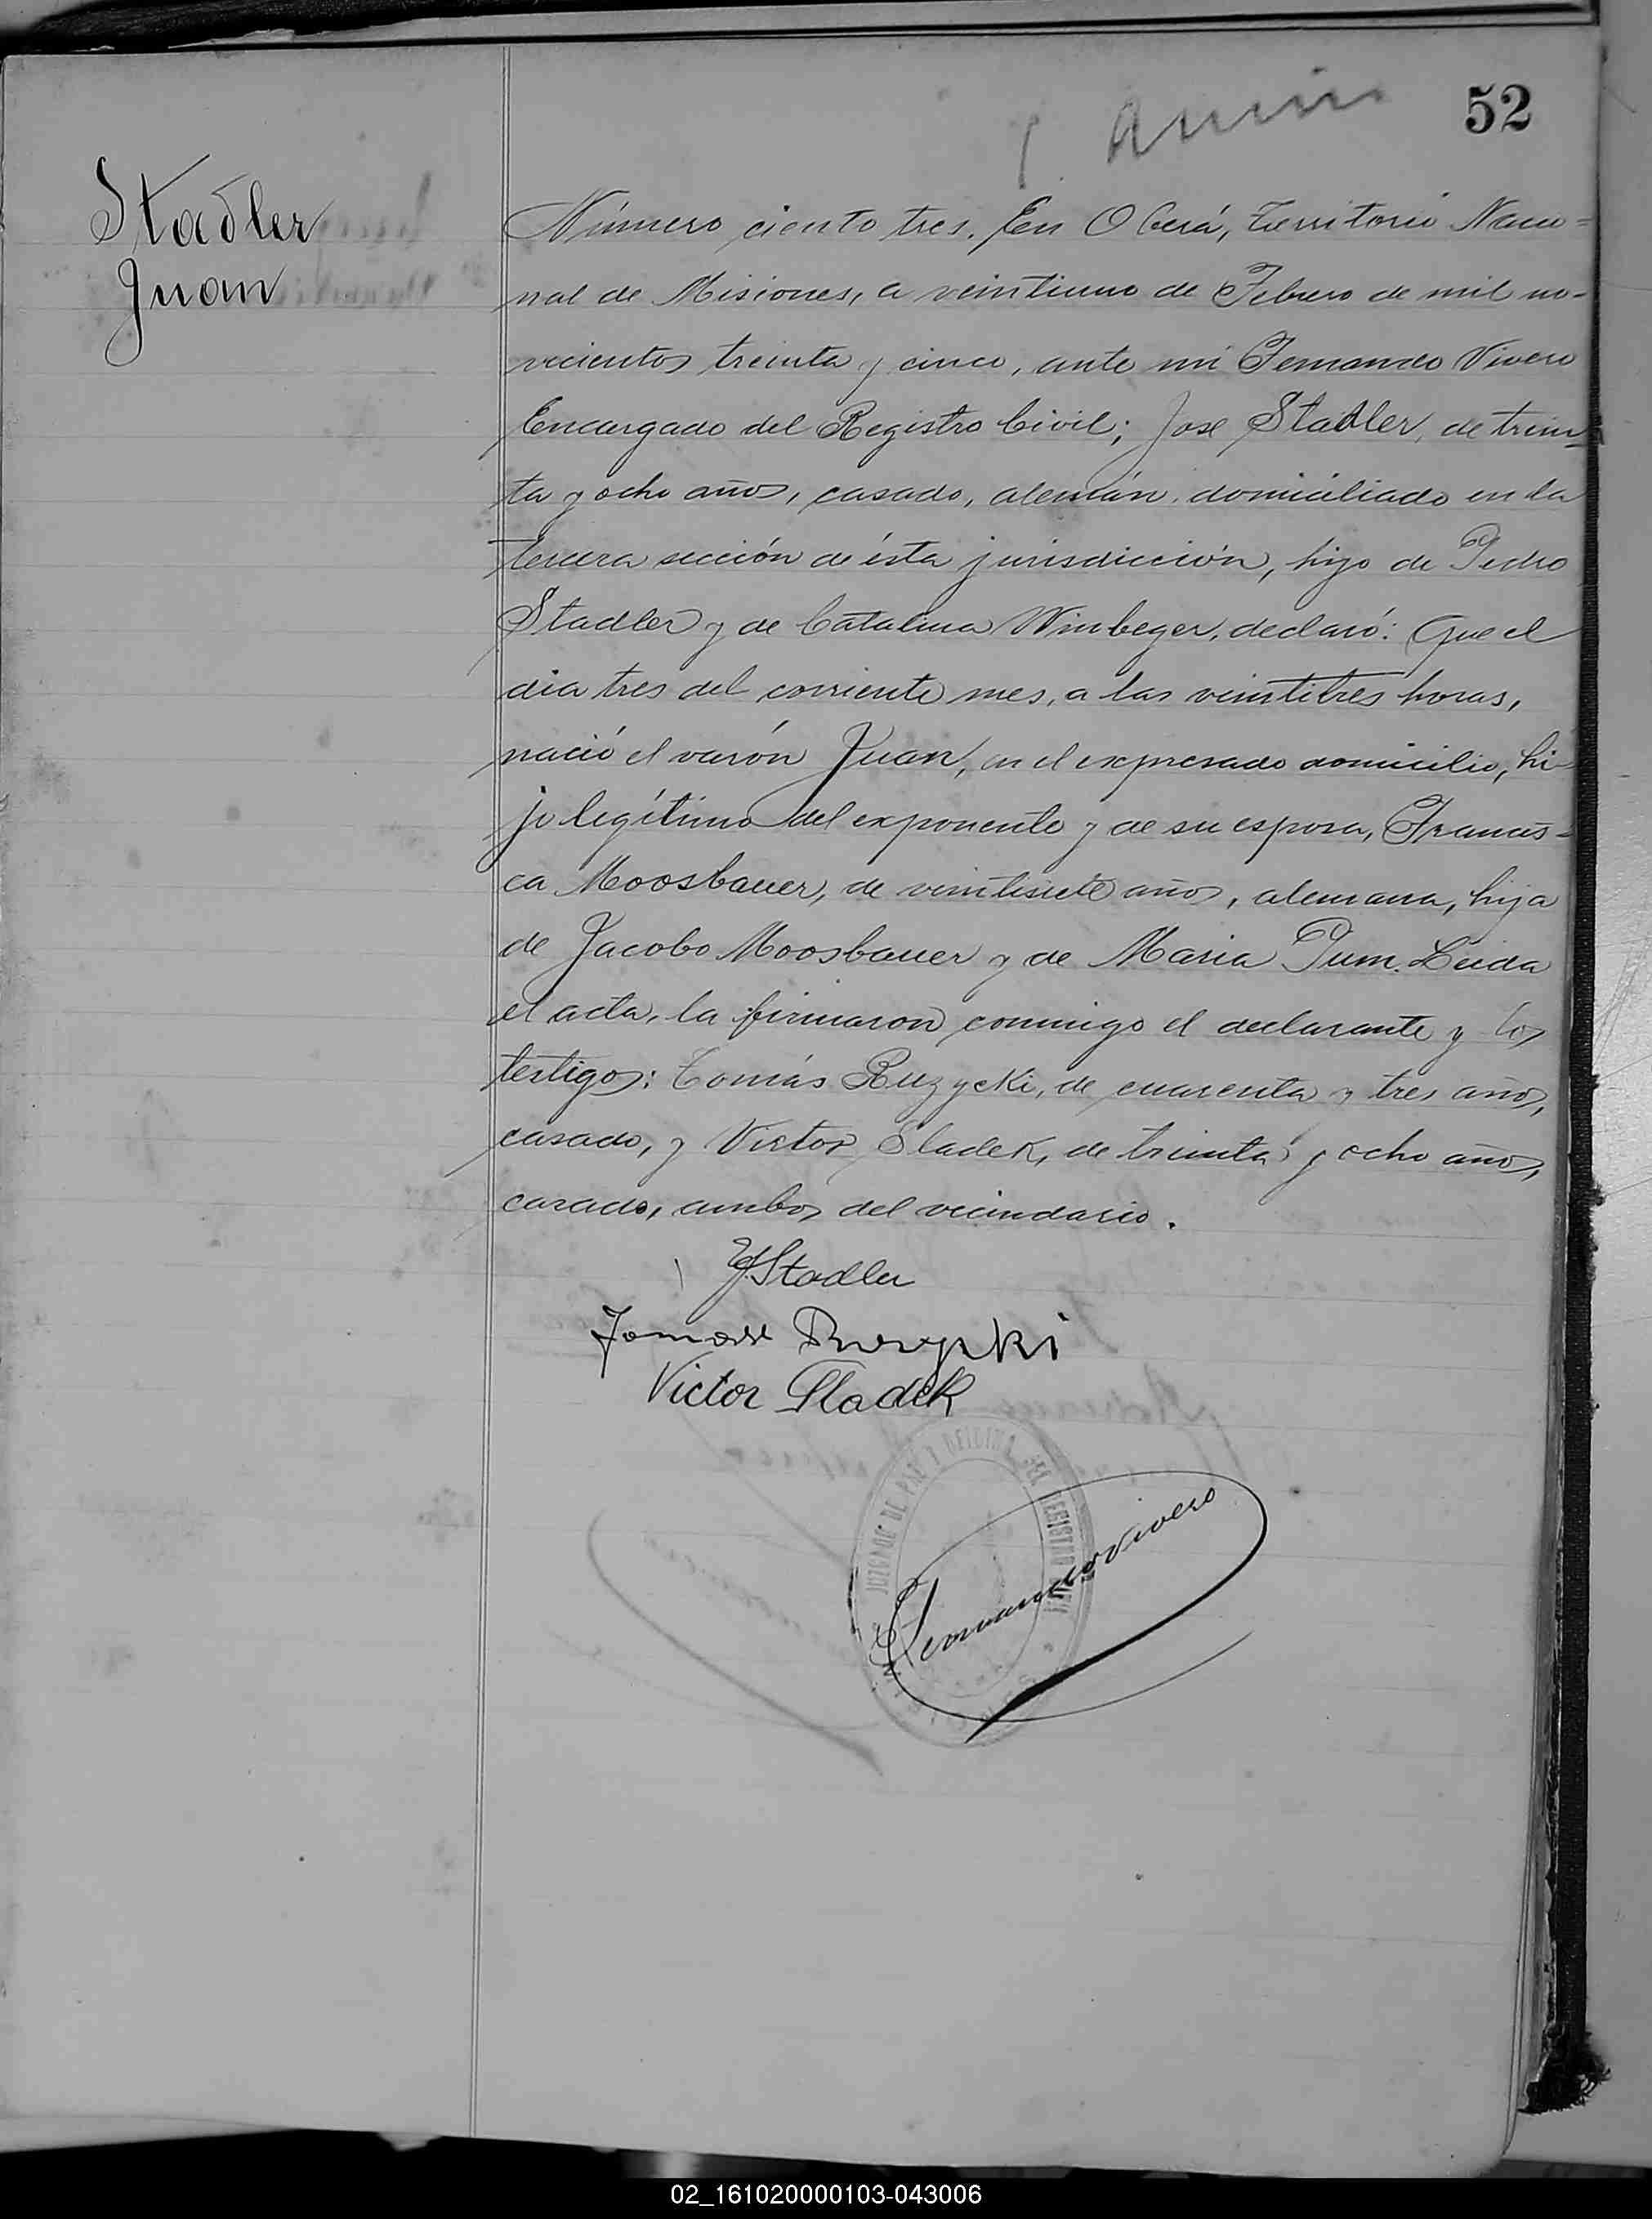 52
Stadler
Juan
Número ciento tres. En Oberá, Territorio Nacio=
nal de Misiones, a veintiuno de Febrero de mil no-
vecientos treinta y cinco, ante mi Fernando Vivero
Encargado del Registro Civil; Jose Stadler, de trein=
ta y ocho años, casado, alemán, domiciliado en la
tercera sección de ésta jurisdicción, hijo de Pedro
Stadler y de Catalina Winbeger, declaró: Que el
dia tres del corriente mes, a las veintitres horas,
nació el varón Juan, en el expresado domicilio, hi-
jo legítimo del exponente y de su esposa, Francis=
ca Moosbauer, de veintisiete años, alemana, hija
de Jacobo Moosbauer y de Maria Pum. Leida
el acta, la firmaron conmigo el declarante y los
testigos: Tomás Ruzycki, de cuarenta y tres años,
casado, y Victor Sladek, de treinta y ocho años,
casado, ambos del vecindario.
J. Stadler
Victor Sladek
JUZGADO DE PAZ Y OFICINA DEL REGISTRO CIVIL
Fernando Vivero
02_161020000103-043006